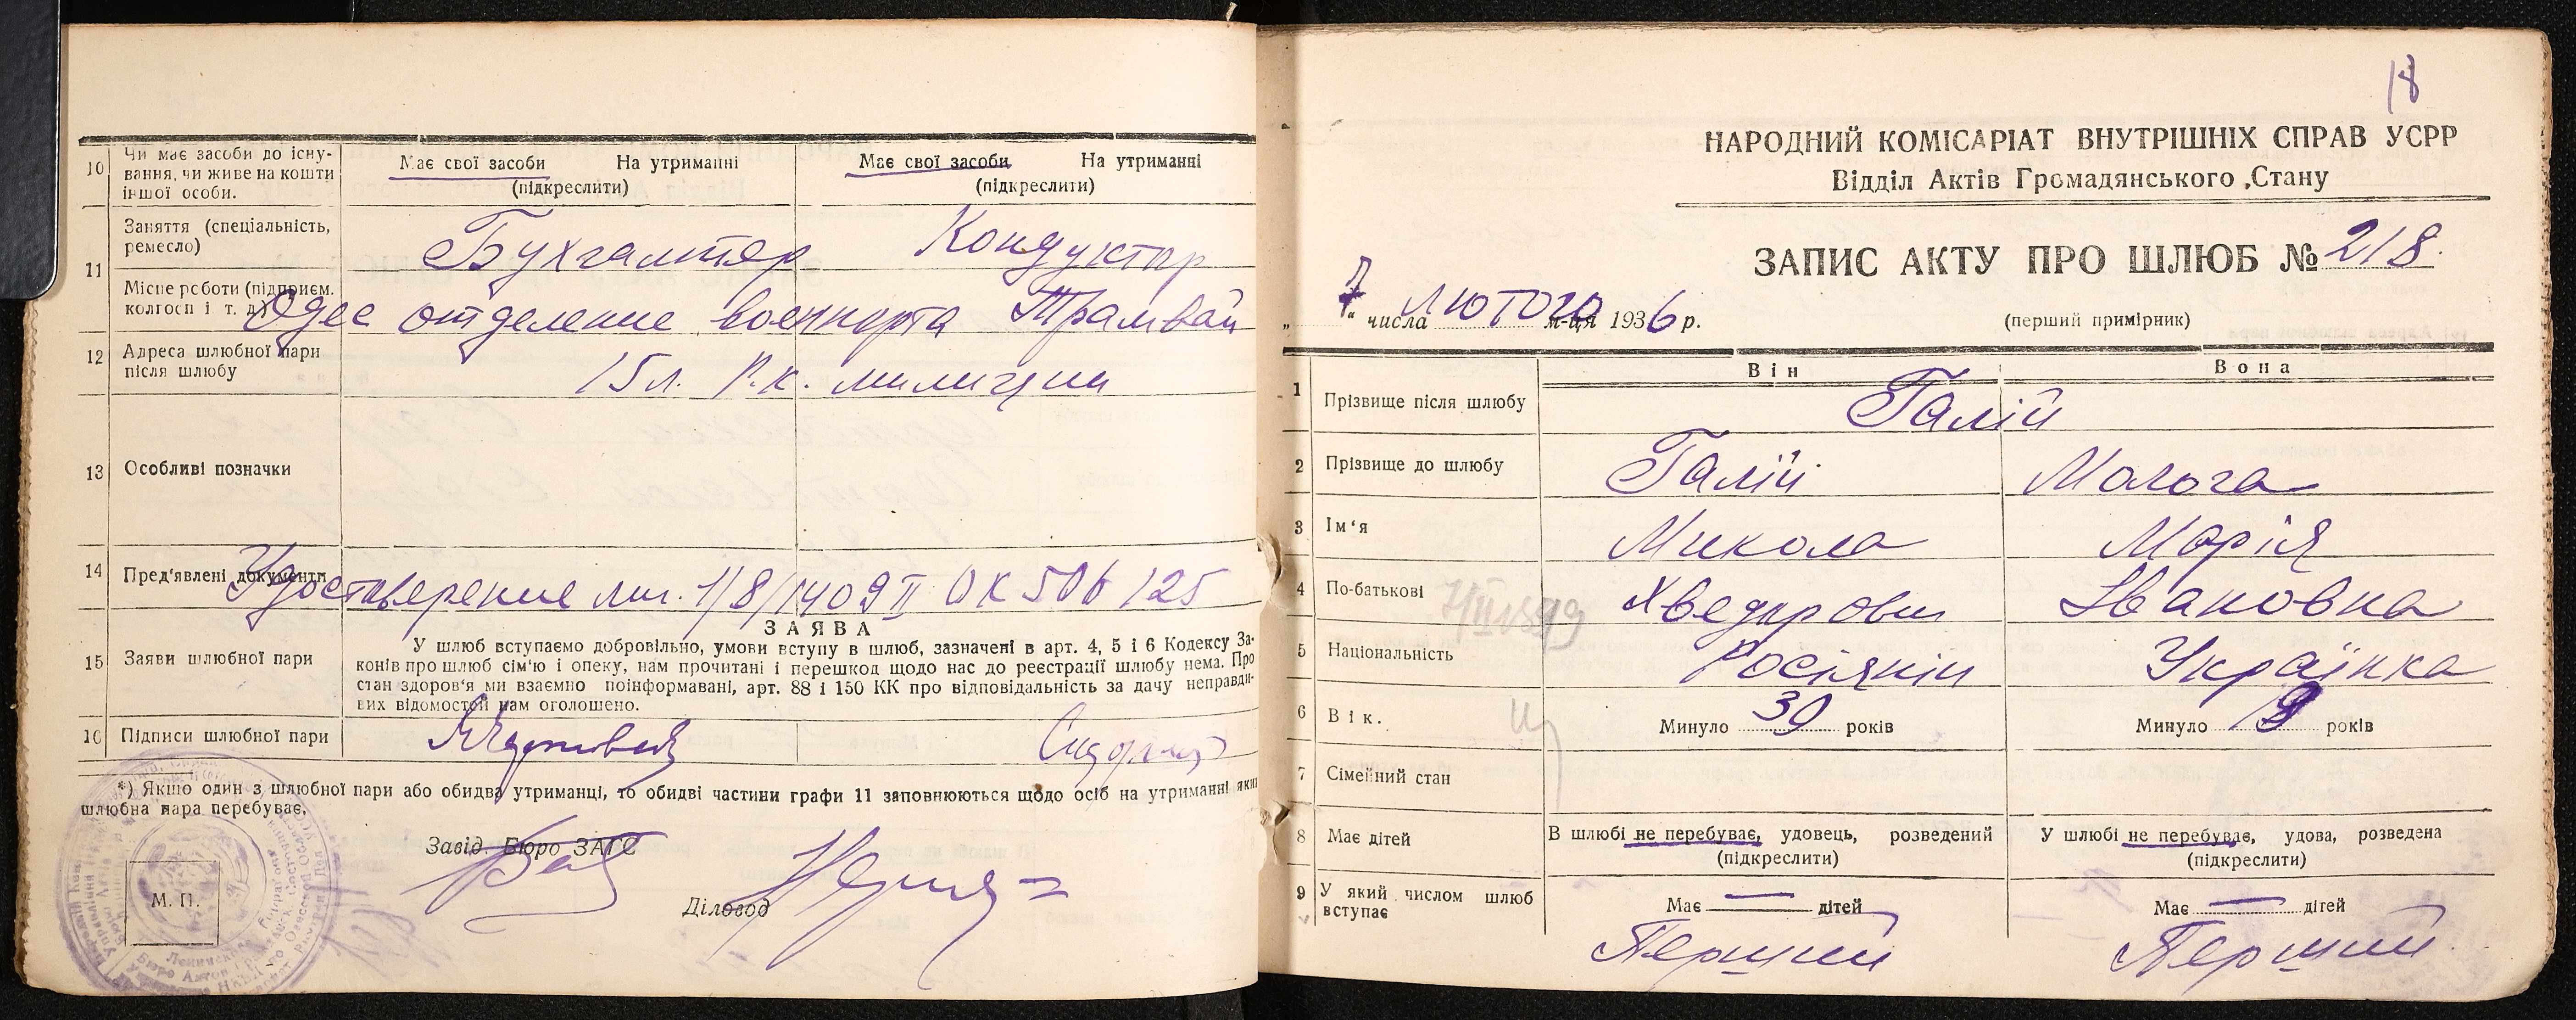 10 Чи має засоби до існу-
вання, чи живе на кошти
іншої особи.
Має свої засоби На утриманні
(підкреслити)
Має свої засоби На утриманні
(підкреслити)
11 Заняття (спеціальність,
ремесло)
Бухгалтер
Кондуктор
Місце роботи (підприєм.
колгосп і т. д.)
Одес отделение военпорта
Трамвай
12 Адреса шлюбної пари
після шлюбу
15 л. Р.К. милиции
13 Особливі позначки
14 Пред'явлені документи
Удоставерение
15 Заяви шлюбної пари
ЗАЯВА
У шлюб вступаємо добровільно, умови вступу в шлюб, зазначені в арт. 4, 5 і 6 Кодексу За-
конів про шлюб сім'ю і опеку, нам прочитані і перешкод щодо нас до реєстрації шлюбу нема. Про
стан здоров'я ми взаємно поінформавані, арт. 88 і 150 КК про відповідальність за дачу неправди-
вих відомостей нам оголошено.
16 Підписи шлюбної пари
*) Якщо один з шлюбної пари або обидва утриманці, то обидві частини графи 11 заповнюються щодо осіб на утриманні яких
шлюбна пара перебуває.
Завід. Бюро ЗАГС
Діловод
М. П.
18
НАРОДНИЙ КОМІСАРІАТ ВНУТРІШНІХ СПРАВ УСРР
Відділ Актів Громадянського Стану
ЗАПИС АКТУ ПРО ШЛЮБ № 218.
„7“ числа лютого м-ця 1936 р.
(перший примірник)
Він
Вона
1 Прізвище після шлюбу
Галій
2 Прізвище до шлюбу
Галій
Молога
3 Ім'я
Микола
Марія
4 По-батькові
7/II 1899
Хведорович
Івановна
5 Національність
Росіянін
Українка
6 Вік.
Минуло 30 років
Минуло 19 років
7 Сімейний стан
8 Має дітей
В шлюбі не перебуває, удовець, розведений
(підкреслити)
У шлюбі не перебуває, удова, розведена
(підкреслити)
9 У який числом шлюб
вступає
Має — дітей
Має — дітей
Перший
Перший